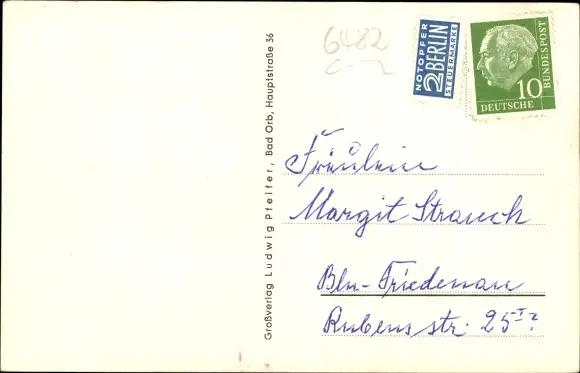 6482
NOTOPFER
2 BERLIN
STEUERMARKE
10
DEUTSCHE
BUNDESPOST
Großverlag Ludwig Pfeifer, Bad Orb, Hauptstraße 36
Fräulein
Margit Strauch
Bln-Friedenau
Rubensstr. 25 I?